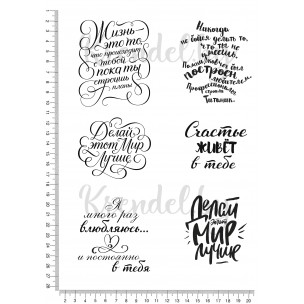 Жизнь
это то,
что происходит
с тобой,
пока ты
строишь
планы
Никогда
не бойся делать то,
что ты не
умеешь.
Помни, ковчег был
построен
любителем.
Профессионалы
строили
Титаник.
Делай
этот Мир
Лучше
Счастье
живёт
в тебе
Я
много раз
влюбляюсь...
и постоянно
в тебя
Делай
этот
мир
лучше
Kendell
Kendell
2 3 4 5 6 7 8 9 10 11 12 13 14 15 16 17 18 19 20